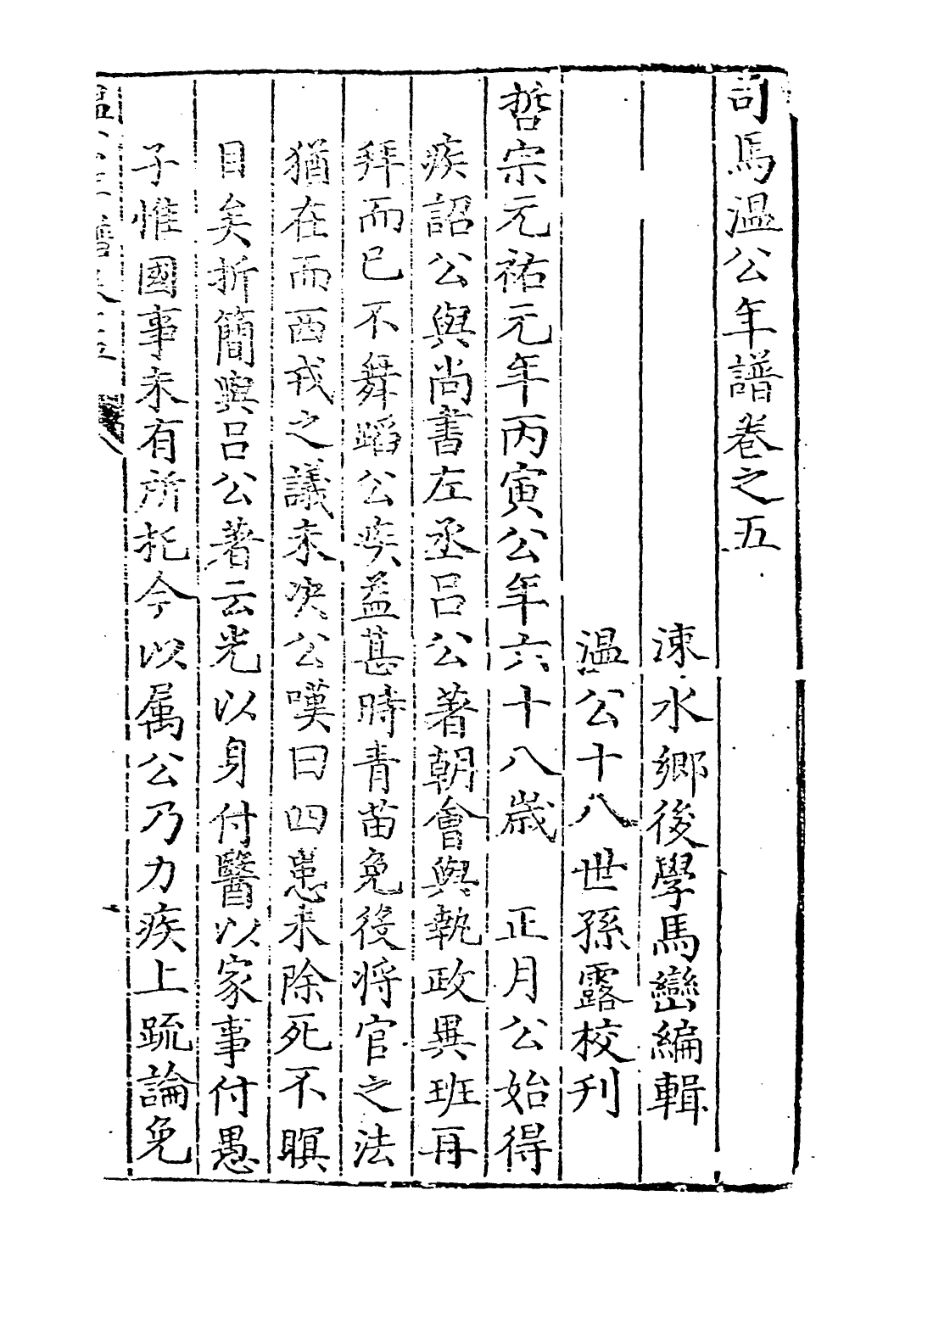 司馬溫公年譜卷之五
涑水鄉後學馬巒編輯
溫公十八世孫露校刋
哲宗元祐元年丙寅公年六十八歲　正月公始得
疾詔公與尚書左丞呂公著朝會與執政異班再
拜而已不舞蹈公疾益甚時青苗免役將官之法
猶在而西戎之議未決公嘆曰四患未除死不瞑
目矣折簡與呂公著云光以身付醫以家事付愚
子惟國事未有所托今以属公乃力疾上疏論免